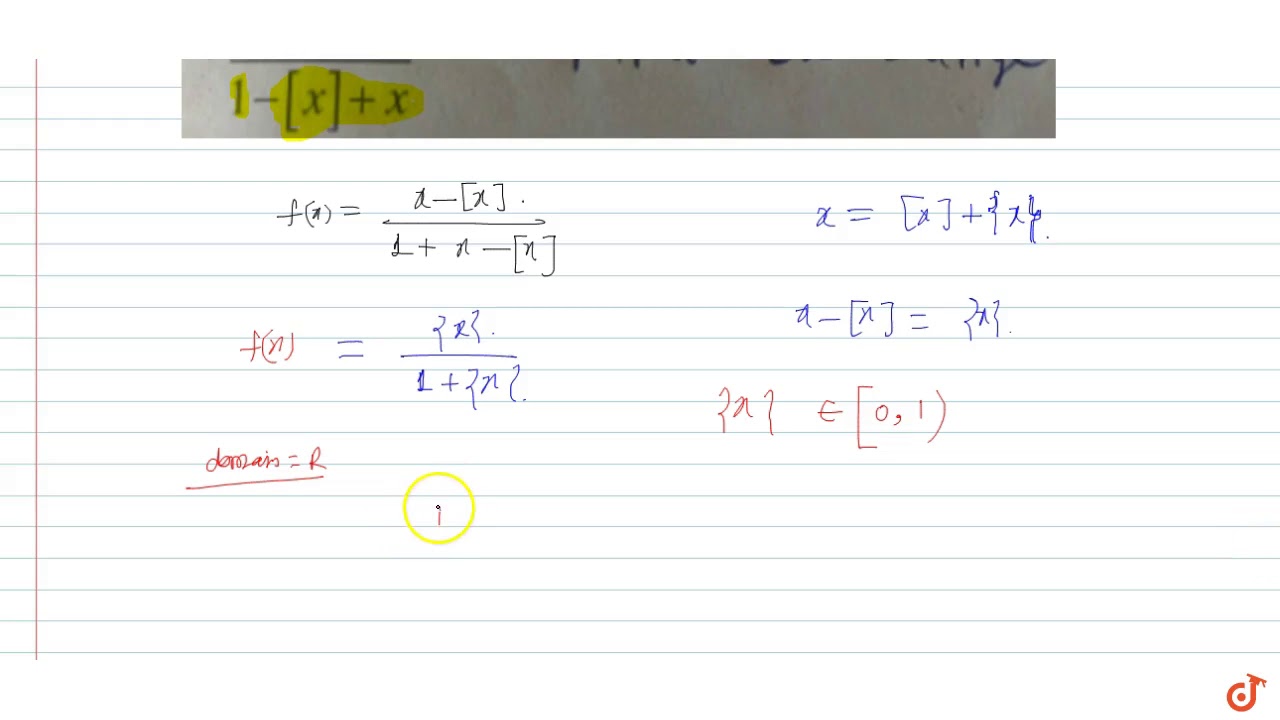 1 − [x] + x
f(x) = x − [x] . / 1 + x − [x]
x = [x] + {x}.
x − [x] = {x}.
f(x) = {x}. / 1 + {x}.
{x} ∈ [0, 1)
domain = R